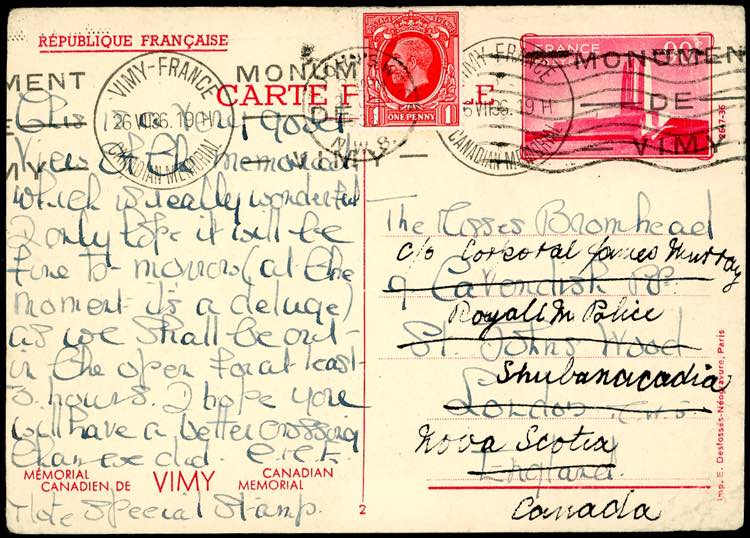 RÉPUBLIQUE FRANÇAISE
CARTE
FRANCE
MONUMENT
DE
VIMY
VIMY-FRANCE
26 VII 36. 19 H
CANADIAN MEMORIAL
MONUM
DE
VIMY
N.W.8.
1 ONE PENNY 1
VIMY-FRANCE
6 VII 36. 19 H
CANADIAN MEMORIAL
MONUMENT
DE
VIMY
2647-36
This is a very good
view of the memorial
which is really wonderful
I only hope it will be
fine to-morrow (at the
moment it's a deluge)
as we shall be out
in the open for at least
3 hours. I hope you
will have a better crossing
than we did.
MÉMORIAL
CANADIEN DE
VIMY
CANADIAN
MEMORIAL
Note Special Stamp.
2
The Misses Bromhead
c/o Corporal James Murray
9 Cavendish
Royall M Police
St. Johns Wood
Shubanacadia
London
Nova Scotia
England.
Canada
Imp. E. Desfossés-Néogravure, Paris